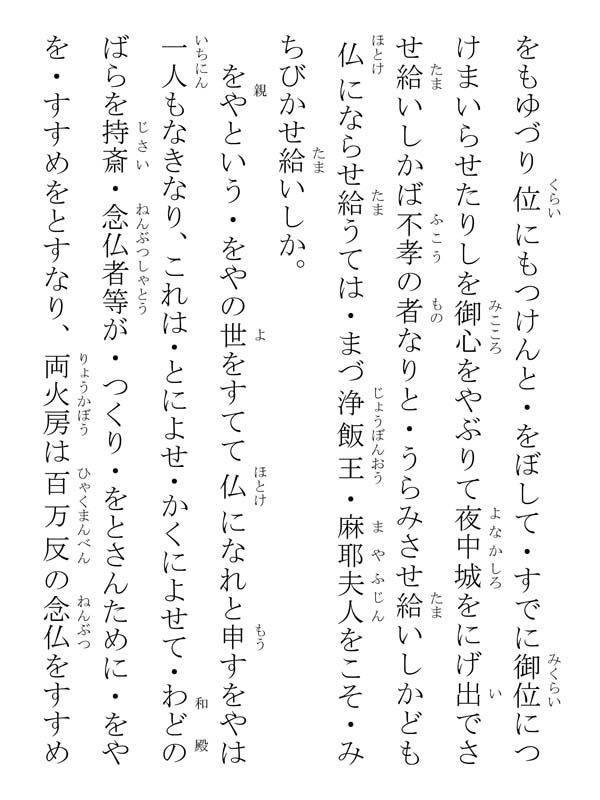 をもゆづり位にもつけんと・をぼして・すでに御位につ
けまいらせたりしを御心をやぶりて夜中城をにげ出でさ
せ給いしかば不孝の者なりと・うらみさせ給いしかども
仏にならせ給うては・まづ浄飯王・麻耶夫人をこそ・み
ちびかせ給いしか。
をやという・をやの世をすてて仏になれと申すをやは
一人もなきなり、これは・とによせ・かくによせて・わどの
ばらを持斎・念仏者等が・つくり・をとさんために・をや
を・すすめをとすなり、両火房は百万反の念仏をすすめ